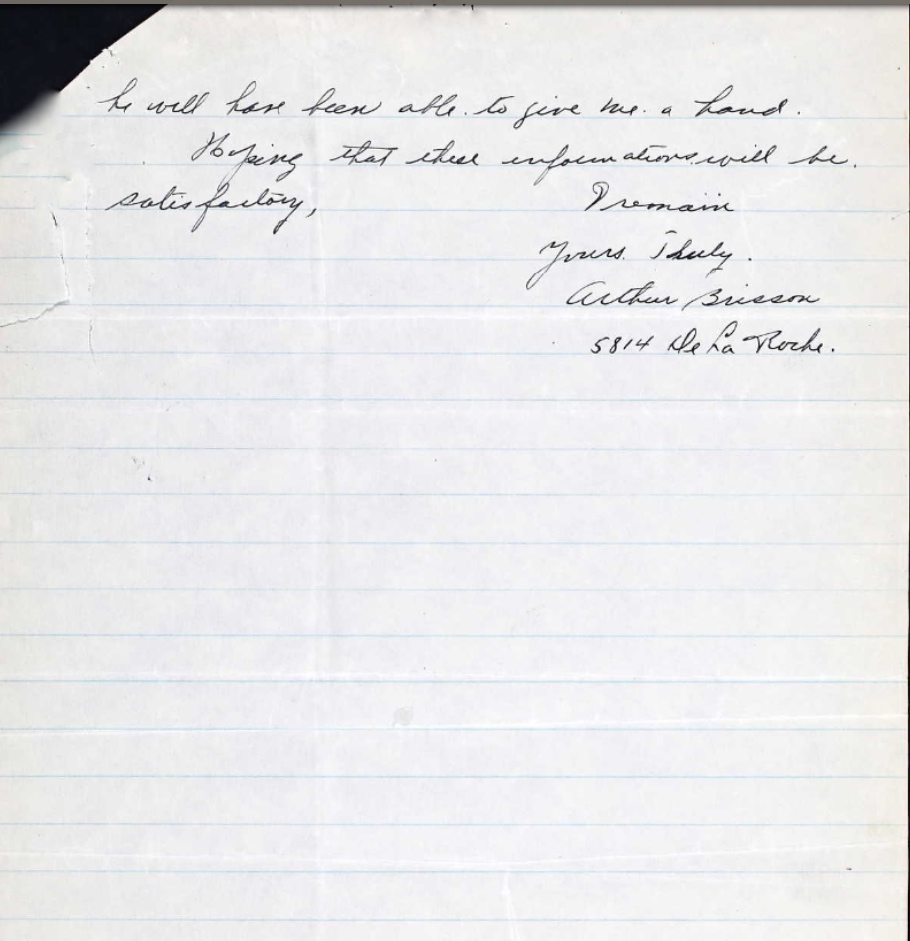 he will have been able to give me a hand.
Hoping that these informations will be
satisfactory, I remain
Yours Truly.
Arthur Brisson
5814 De La Roche.